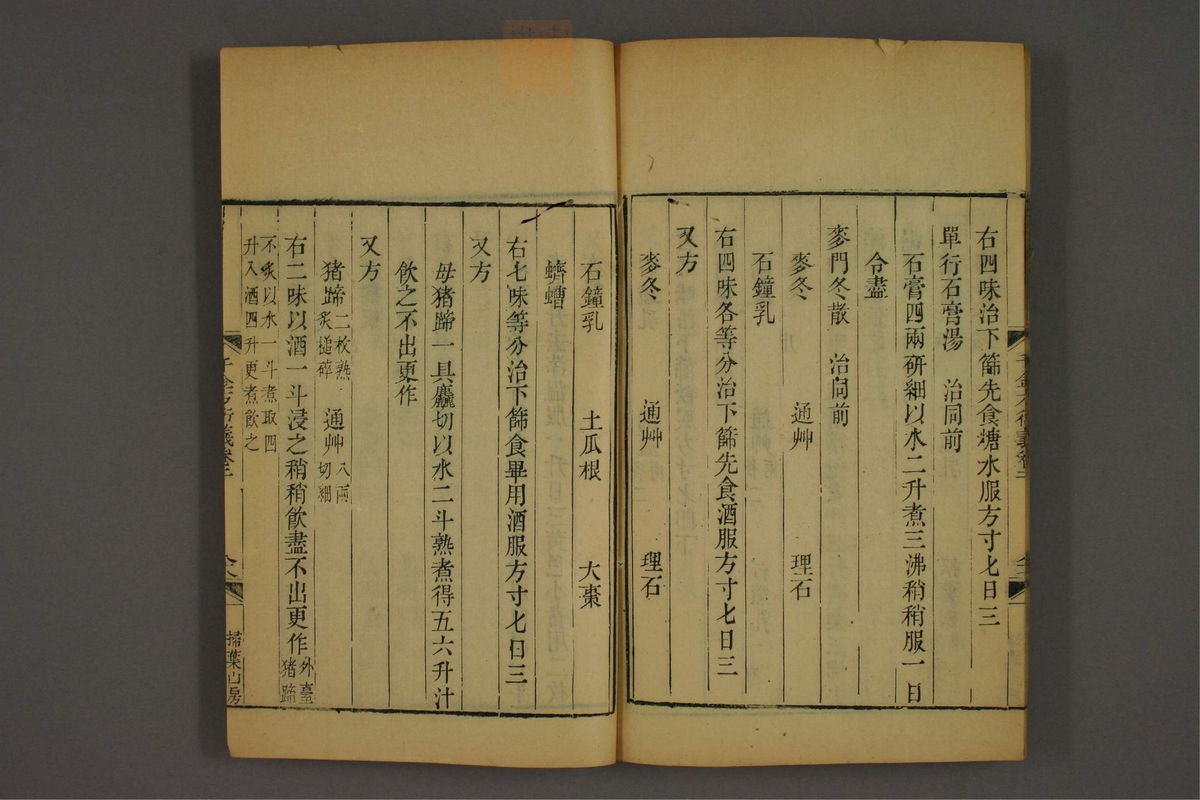 右四味治下篩先食糖水服方寸匕日三
單行石膏湯　治同前
石膏四兩研細以水二升煮三沸稍稍服一日
令盡
麥門冬散　治同前
麥冬　通艸　理石
石鐘乳
右四味各等分治下篩先食酒服方寸匕日三
又方
麥冬　通艸　理石
石鐘乳　土瓜根　大棗
蠐螬
右七味等分治下篩食畢用酒服方寸匕日三
又方
母猪蹄一具麤切以水二斗熟煮得五六升汁
飲之不出更作
又方
猪蹄二枚熟炙槌碎　通艸八兩切細
右二味以酒一斗浸之稍稍飲盡不出更作外臺猪蹄
不炙以水一斗煮取四
升入酒四升更煮飲之
千金方衍義卷二
掃葉山房